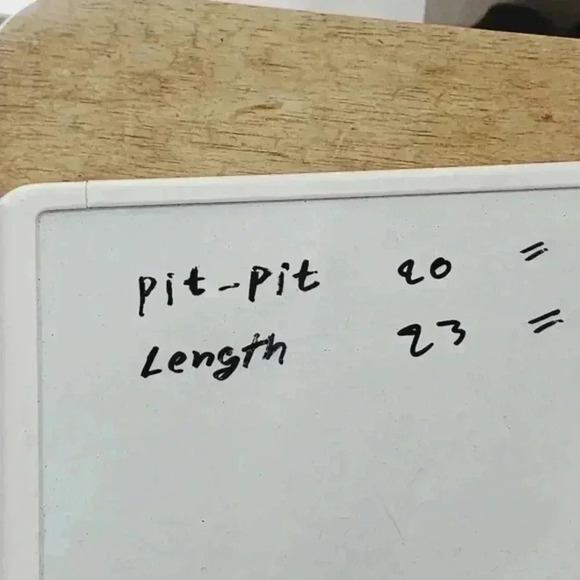 Pit-Pit 20 "
Length 23 "